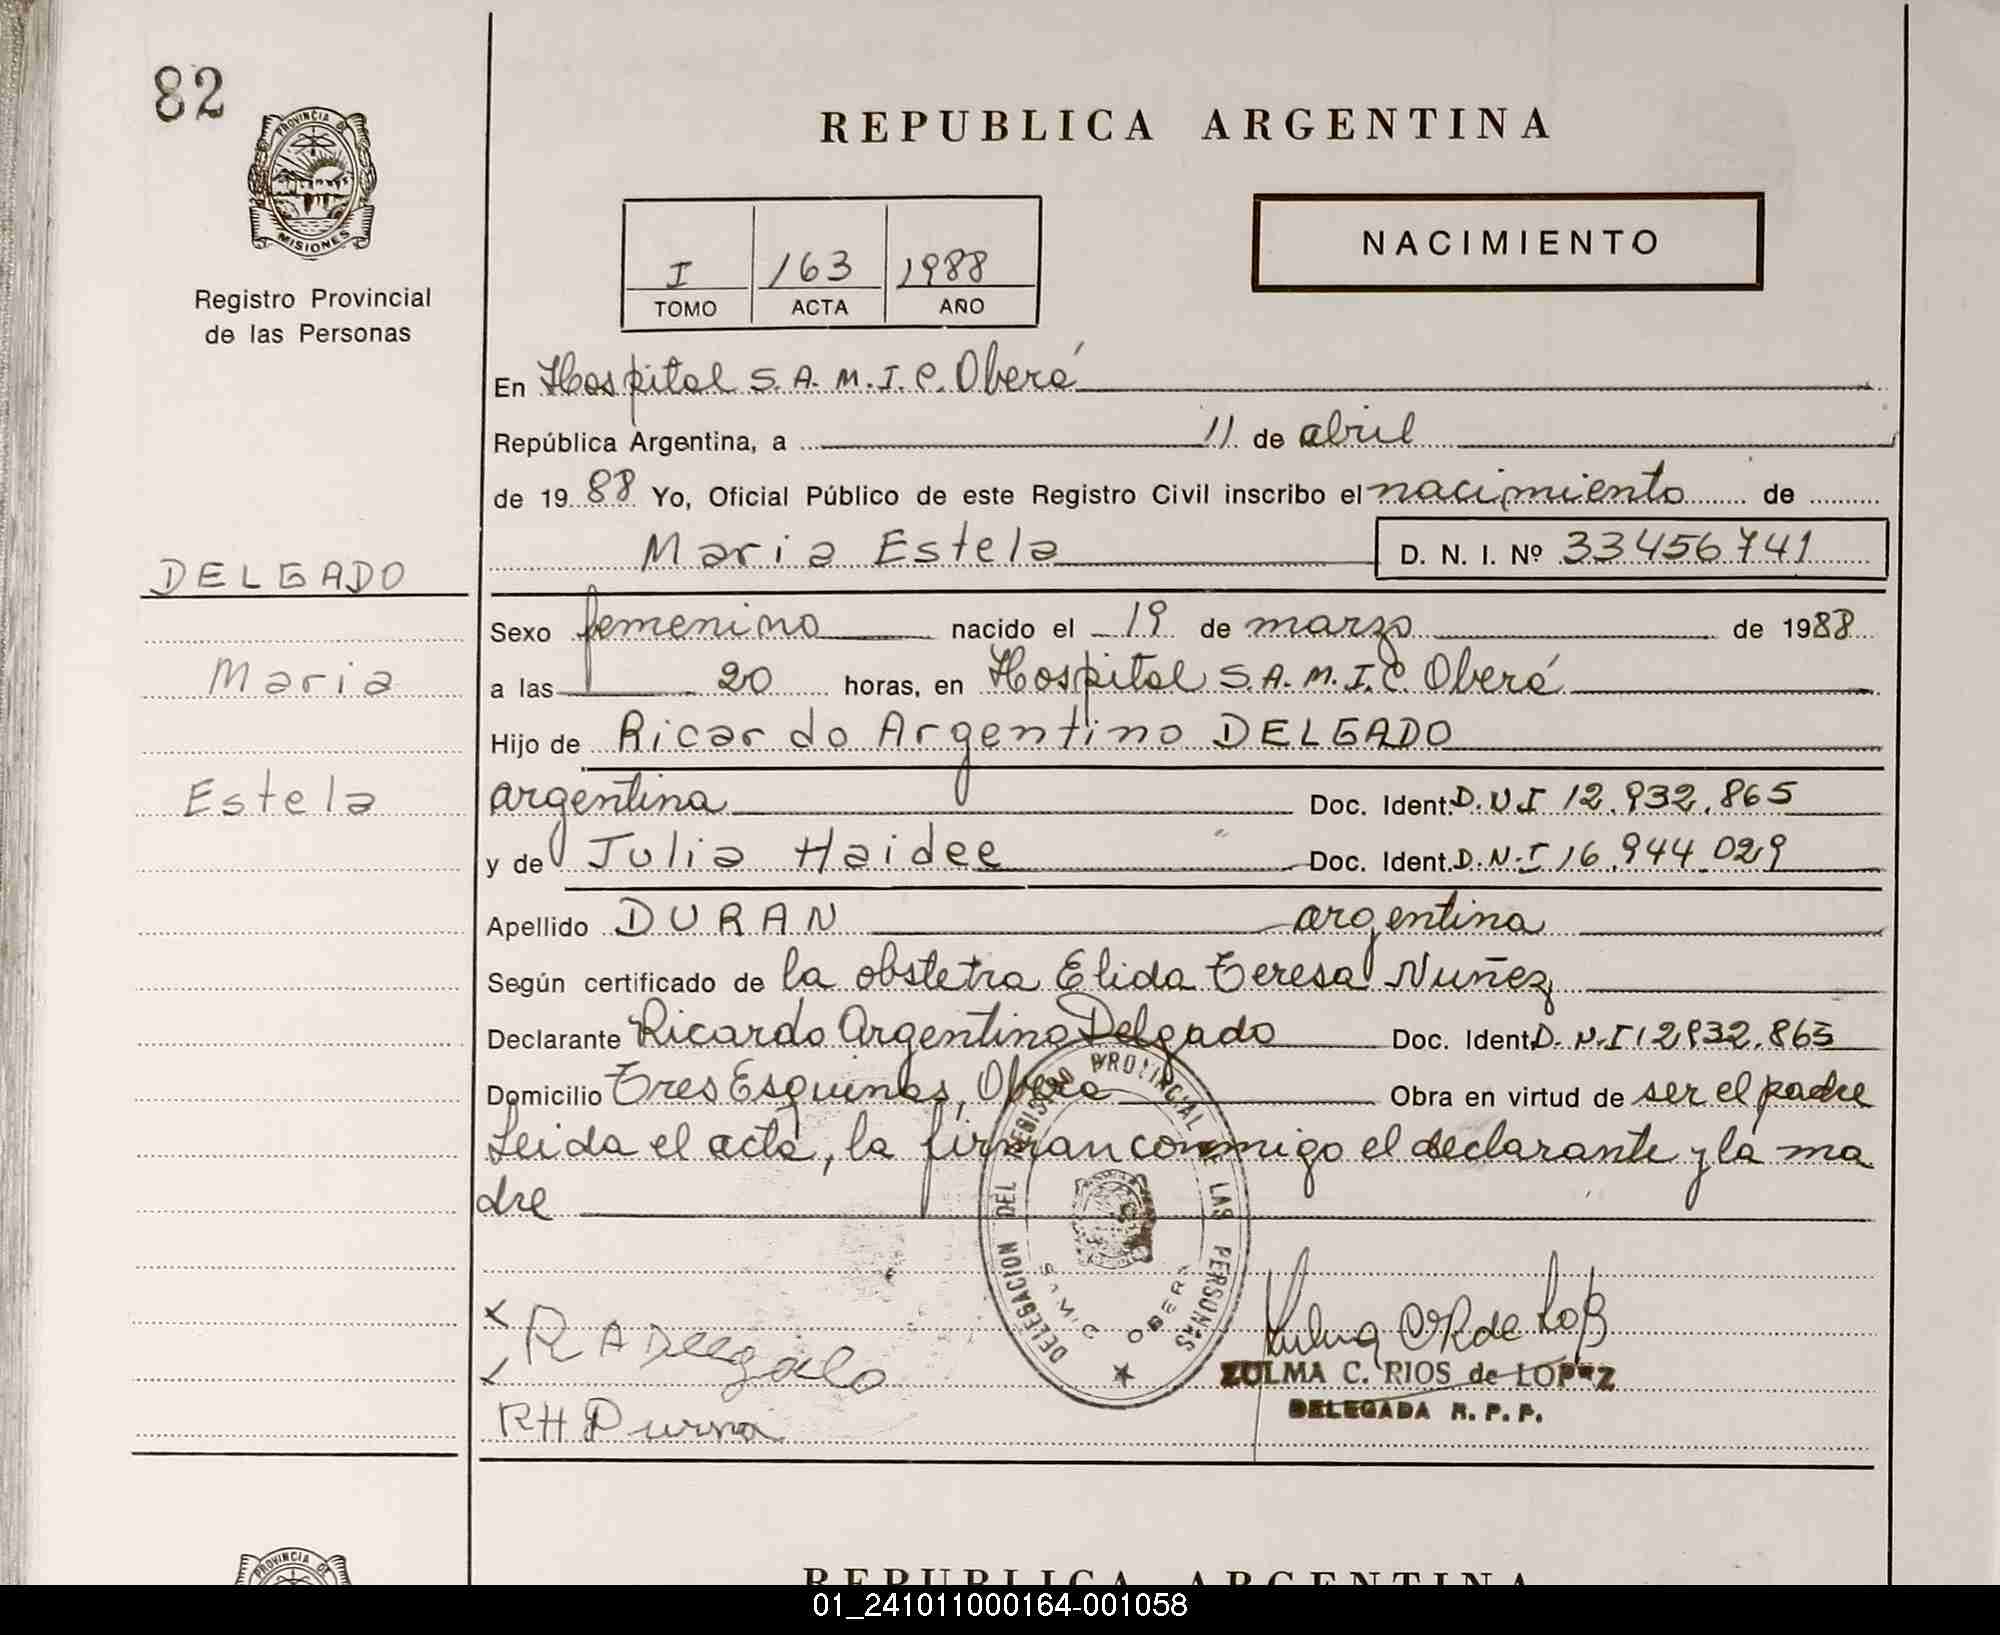 82
PROVINCIA DE
MISIONES
Registro Provincial
de las Personas
REPUBLICA ARGENTINA
NACIMIENTO
I 163 1988
TOMO ACTA AÑO
En Hospital S.A.M.I.C. Oberá
República Argentina, a 11 de abril
de 1988 Yo, Oficial Público de este Registro Civil inscribo el nacimiento de
Maria Estela D. N. I. Nº 33456741
DELGADO
Maria
Estela
Sexo femenino nacido el 19 de marzo de 1988
a las 20 horas, en Hospital S.A.M.I.C. Oberá
Hijo de Ricardo Argentino DELGADO
argentina Doc. Ident. D.N.I 12.932.865
y de Julia Haidee Doc. Ident. D.N.I 16.944.029
Apellido DURAN argentina
Según certificado de la obstetra Elida Teresa Nuñez
Declarante Ricardo Argentino Delgado Doc. Ident. D.N.I 12932.865
Domicilio Tres Esquinas, Obera Obra en virtud de ser el padre
Leida el acta, la firman conmigo el declarante y la ma
dre
DELEGACION DEL REGISTRO PROVINCIAL DE LAS PERSONAS
SAMIC OBERA
R A Delgado
ZULMA C. RIOS de LOPEZ
DELEGADA R. P. P.
PROVINCIA DE
REPUBLICA ARGENTINA
01_241011000164-001058